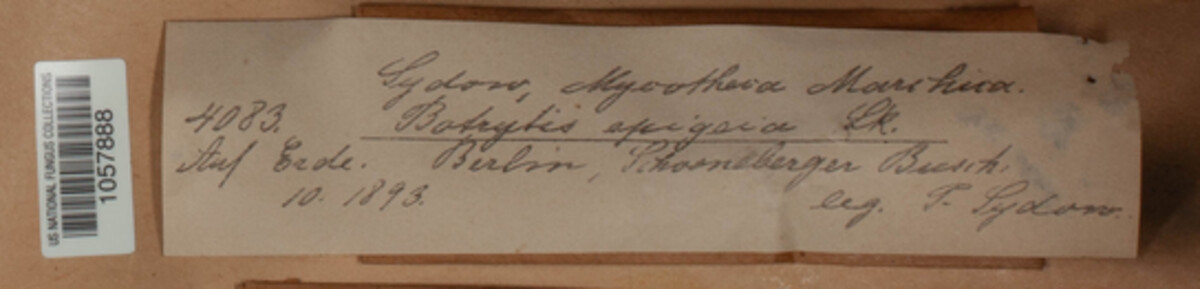 US NATIONAL FUNGUS COLLECTIONS
1057888
Sydow, Mycotheca Marchica.
4083. Botrytis epigaea Lk.
Auf Erde. Berlin, Schoeneberger Busch.
10. 1893. leg. P. Sydow.